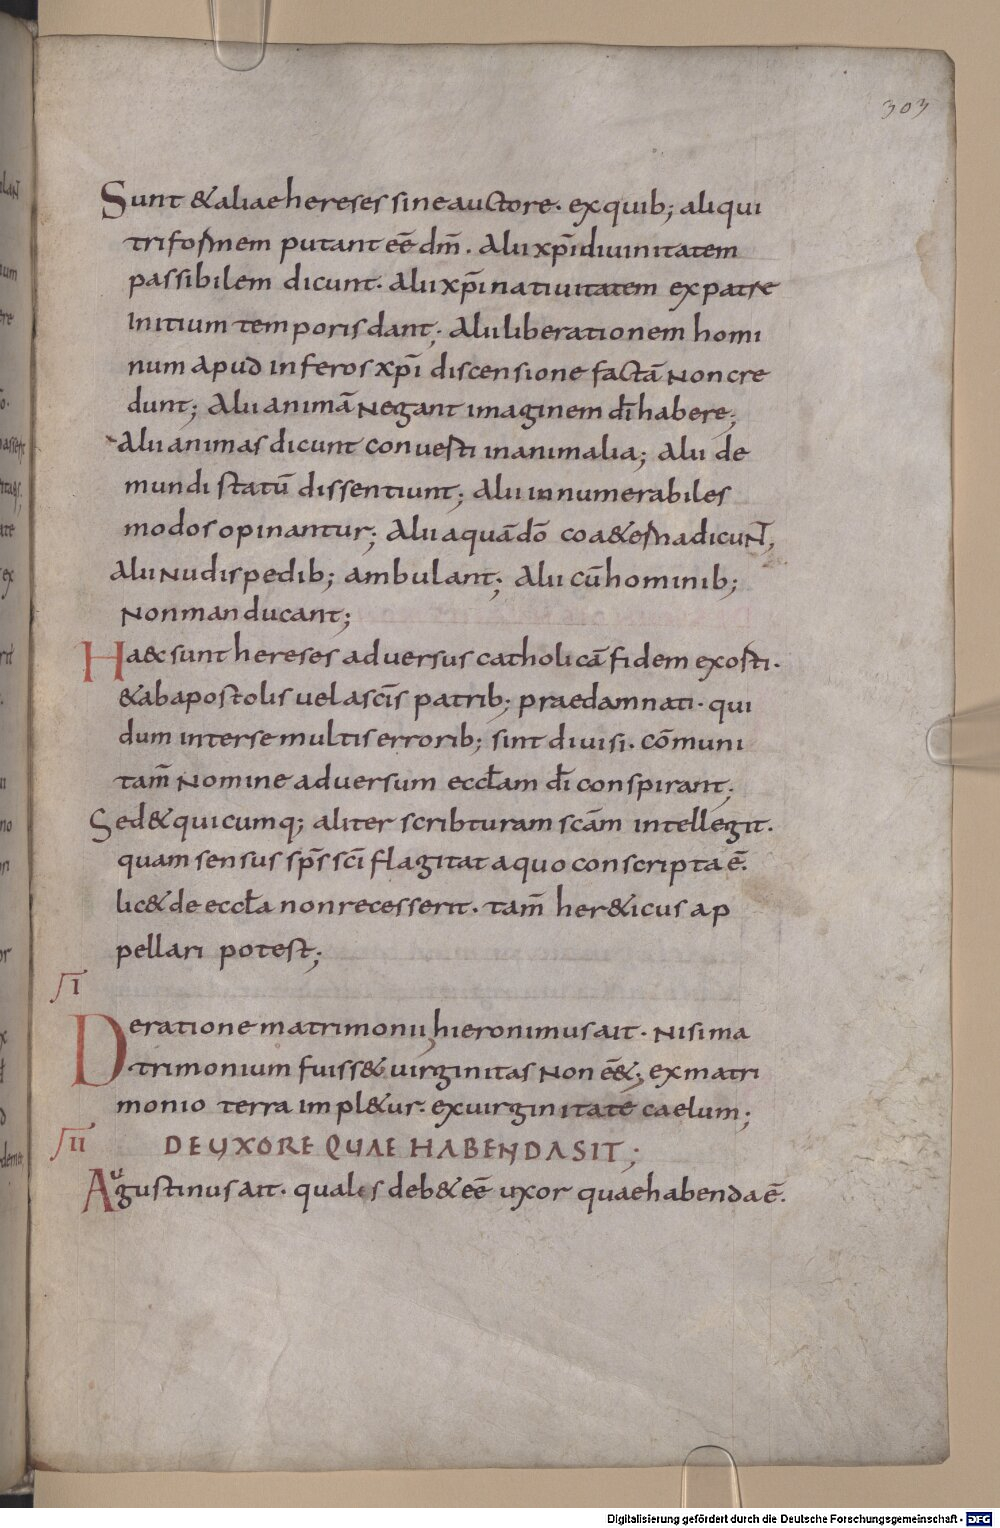 303
Sunt & aliae hereses sine auctore. ex quib; aliqui
triformem putant eē dm̄. Alii xp̄i diuinitatem
passibilem dicunt. Alii xp̄i natiuitatem ex patre
Initium temporis dant; Alii liberationem homi
num apud inferos xp̄i discensione factā Non cre
dunt; Alii animā Negant imaginem dī habere;
Alii animas dicunt conuesti in animalia; Alii de
mundi statū dissentiunt; Alii innumerabiles
modos opinantur; Alii aquā dō coa&erna dicuNT;
Alii Nudis pedib; ambulant; Alii cū hominib;
Non manducant;
Ha&c sunt hereses aduersus catholicā fidem exosti.
& ab apostolis uel a scīs patrib; praedamnati. qui
dum inter se multis errorib; sint diuisi. cōmuni
tam̄ Nomine aduersum eccłam dī conspirant;
Sed & quicumq; aliter scribturam scām intellegit.
quam sensus sp̄s scī flagitat a quo conscripta ē.
lic& de eccła non recesserit. tam̄ her&icus ap
pellari potest;
I
De ratione matrimonii hieronimus ait. Nisi ma
trimonium fuiss& uirginitas Non ē&; ex matri
monio terra impl&ur. ex uirginitate caelum;
II DE UXORE QUAE HABENDA SIT;
Augustinus ait. quales deb& eē uxor quae habenda ē.
Digitalisierung gefördert durch die Deutsche Forschungsgemeinschaft - DFG